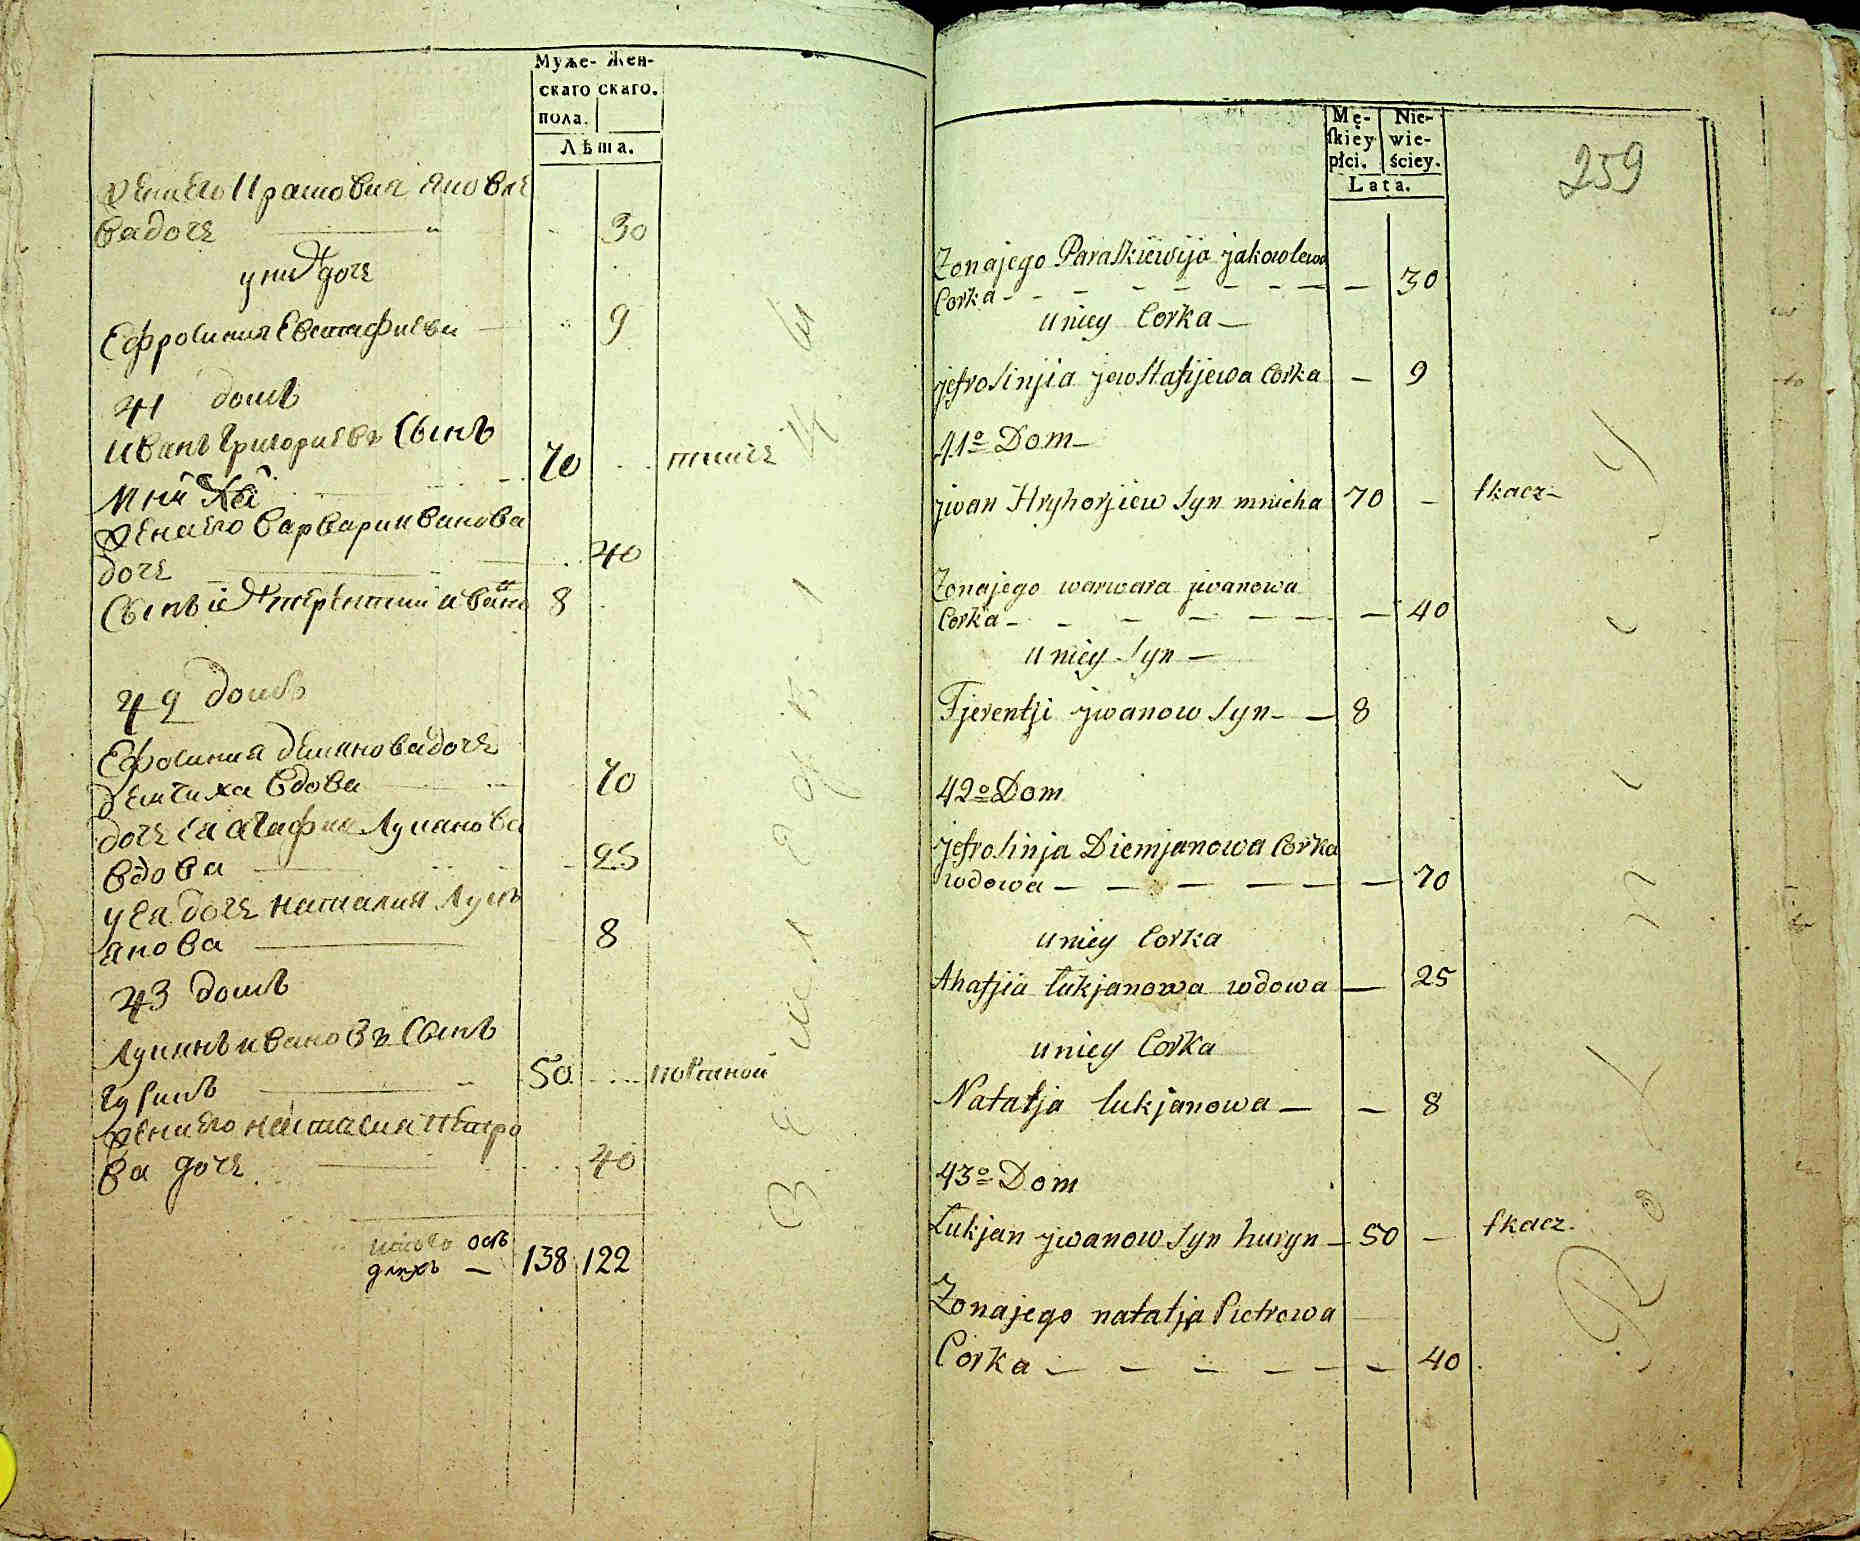 Муже- Жен-
скаго скаго.
пола.
Лѣта.
жена его Прасковия Яковле
ва дочь 30
у них дочь
Ефросиния Евстафиева 9
41 домъ
Иванъ Григориевъ сынъ 70
жена его варвара иванова
дочь 40
Сынъ их терентий ивано 8
42 домъ
Ефросиния демянова дочь
вдова 70
дочь ея агафия Лукianова
вдова 25
у ея дочь наталия Лукь
янова 8
43 домъ
Лукянъ ивановъ сынъ
гуринъ 50
жена его наталия петро
ва дочь 40
138 122
Mę- Nie-
skiey wie-
płci. ściey.
Lata.
259
Zonajego Paraskiewija jakowlewa
Corka - - - - - - - - 30
uniey Corka -
jefrosinjia jewstafijewa Corka - 9
41o Dom -
jwan Hryhorjiew syn mnicha 70 - tkacz -
Zonajego warwara jwanowa
Corka - - - - - - - 40
uniey syn -
Tjerentji jwanow syn - - 8
42o Dom
jefrosinja Diemjanowa Corka
wdowa - - - - - - 70
uniey Corka
Ahafjia Łukjanowa wdowa - 25
uniey Corka
Natatja łukjanowa - - 8
43o Dom
Łukjan jwanow syn huryn - 50 - tkacz.
Zonajego natatja Pietrowa
Corka - - - - - - 40